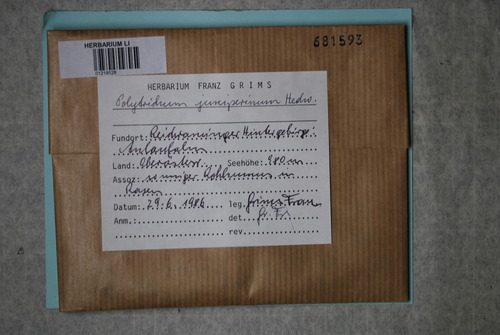 681593
HERBARIUM LI
HERBARIUM FRANZ GRIMS
Polytrichum juniperinum Hedw.
Fundort: Reichraminger Hintergebirge:
Anlaufalm
Land: Oberösterr. Seehöhe: 980 m
Assoz.
Rasen
Datum: 29.6.1986 leg. Grims Franz
Anm.: det. Gr. Fr.
rev.